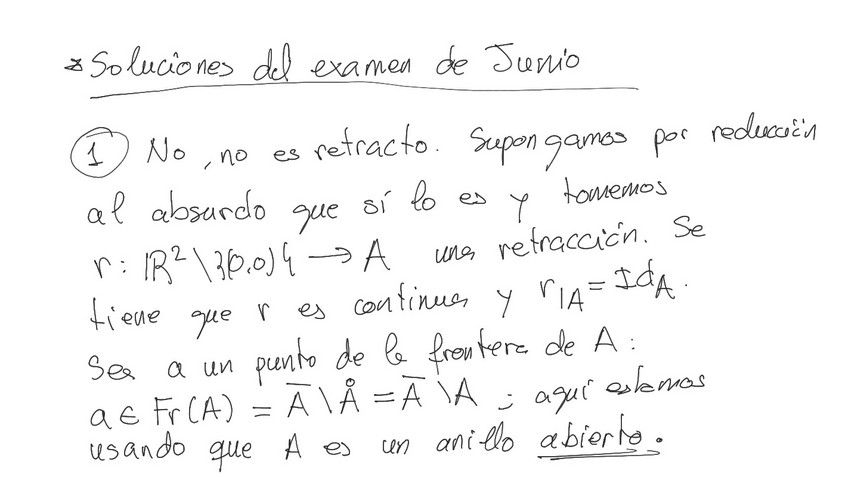 * Soluciones del examen de Junio
① No, no es retracto. Supongamos por reducción
al absurdo que sí lo es y tomemos
r: ℝ²\{(0,0)} → A una retracción. Se
tiene que r es continua y r|A = IdA.
Sea a un punto de la frontera de A:
a ∈ Fr(A) = A̅ \ Å = A̅ \ A ; aquí estamos
usando que A es un anillo abierto.